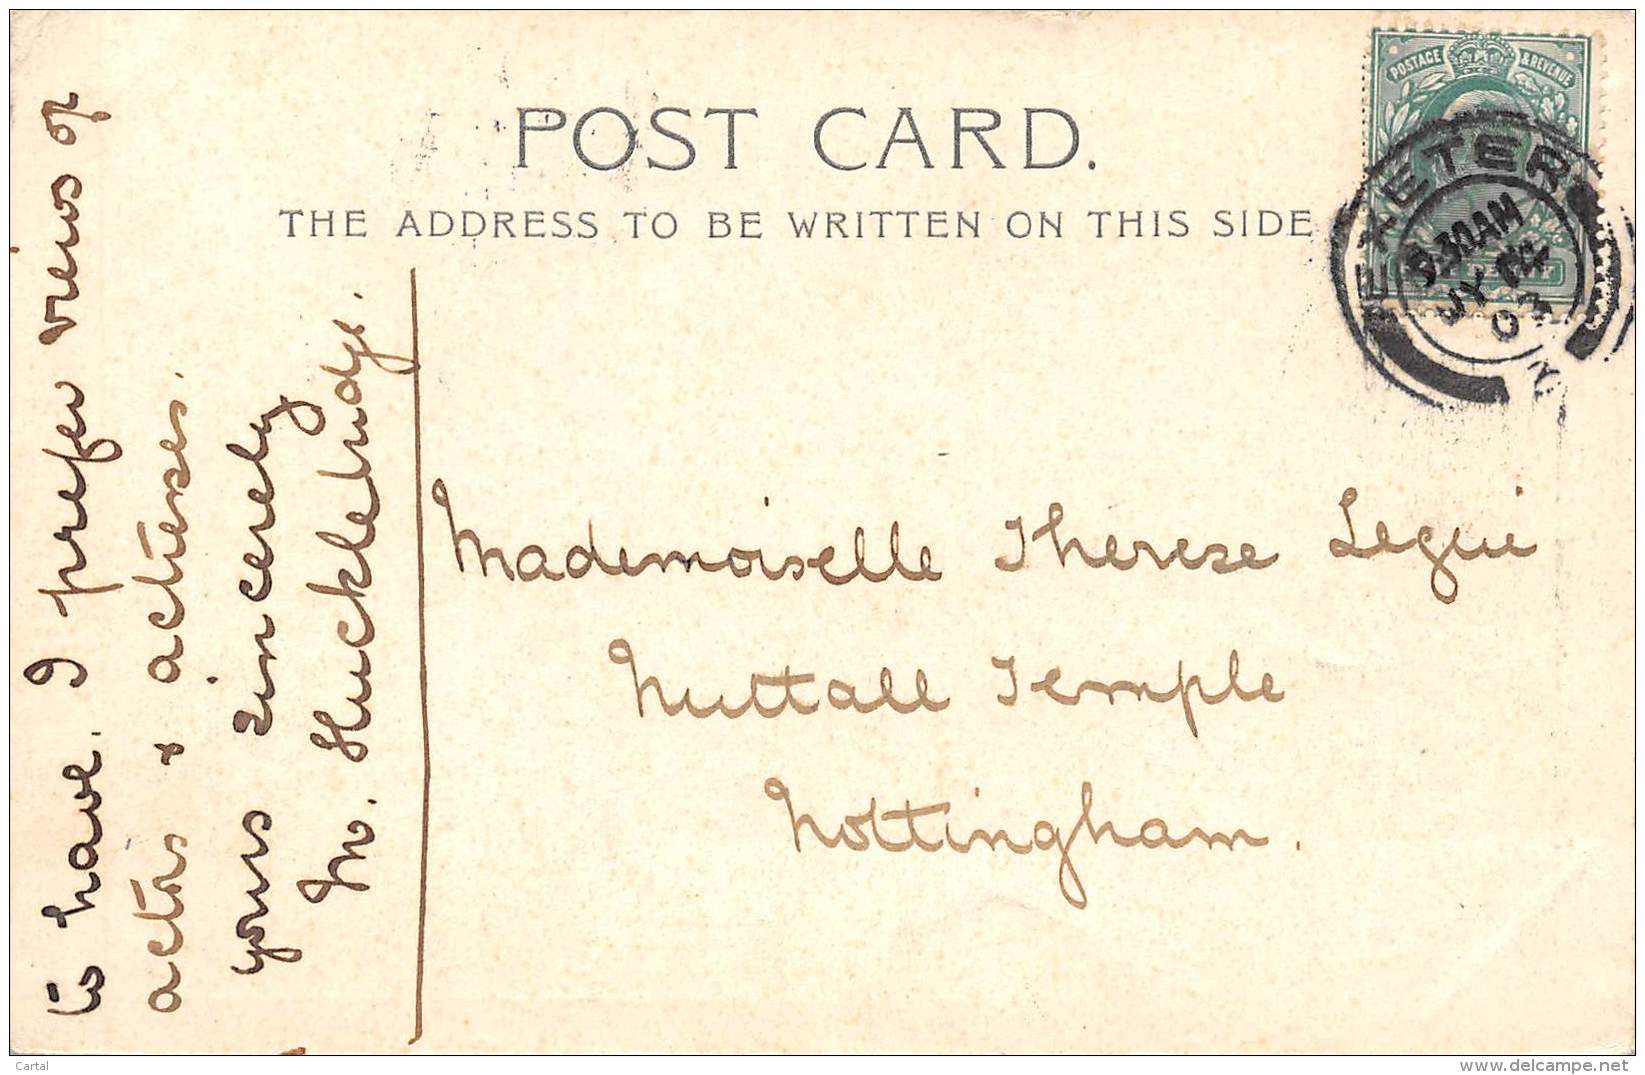 POST CARD.
THE ADDRESS TO BE WRITTEN ON THIS SIDE
POSTAGE & REVENUE
EXETER
9.30AM
JY 14
03
to have. I prefer views of
actors & actresses.
yours sincerely
M. Huckletudge.
Mademoiselle Therese Legue
Nuttall Temple
Nottingham.
Cartal
www.delcampe.net